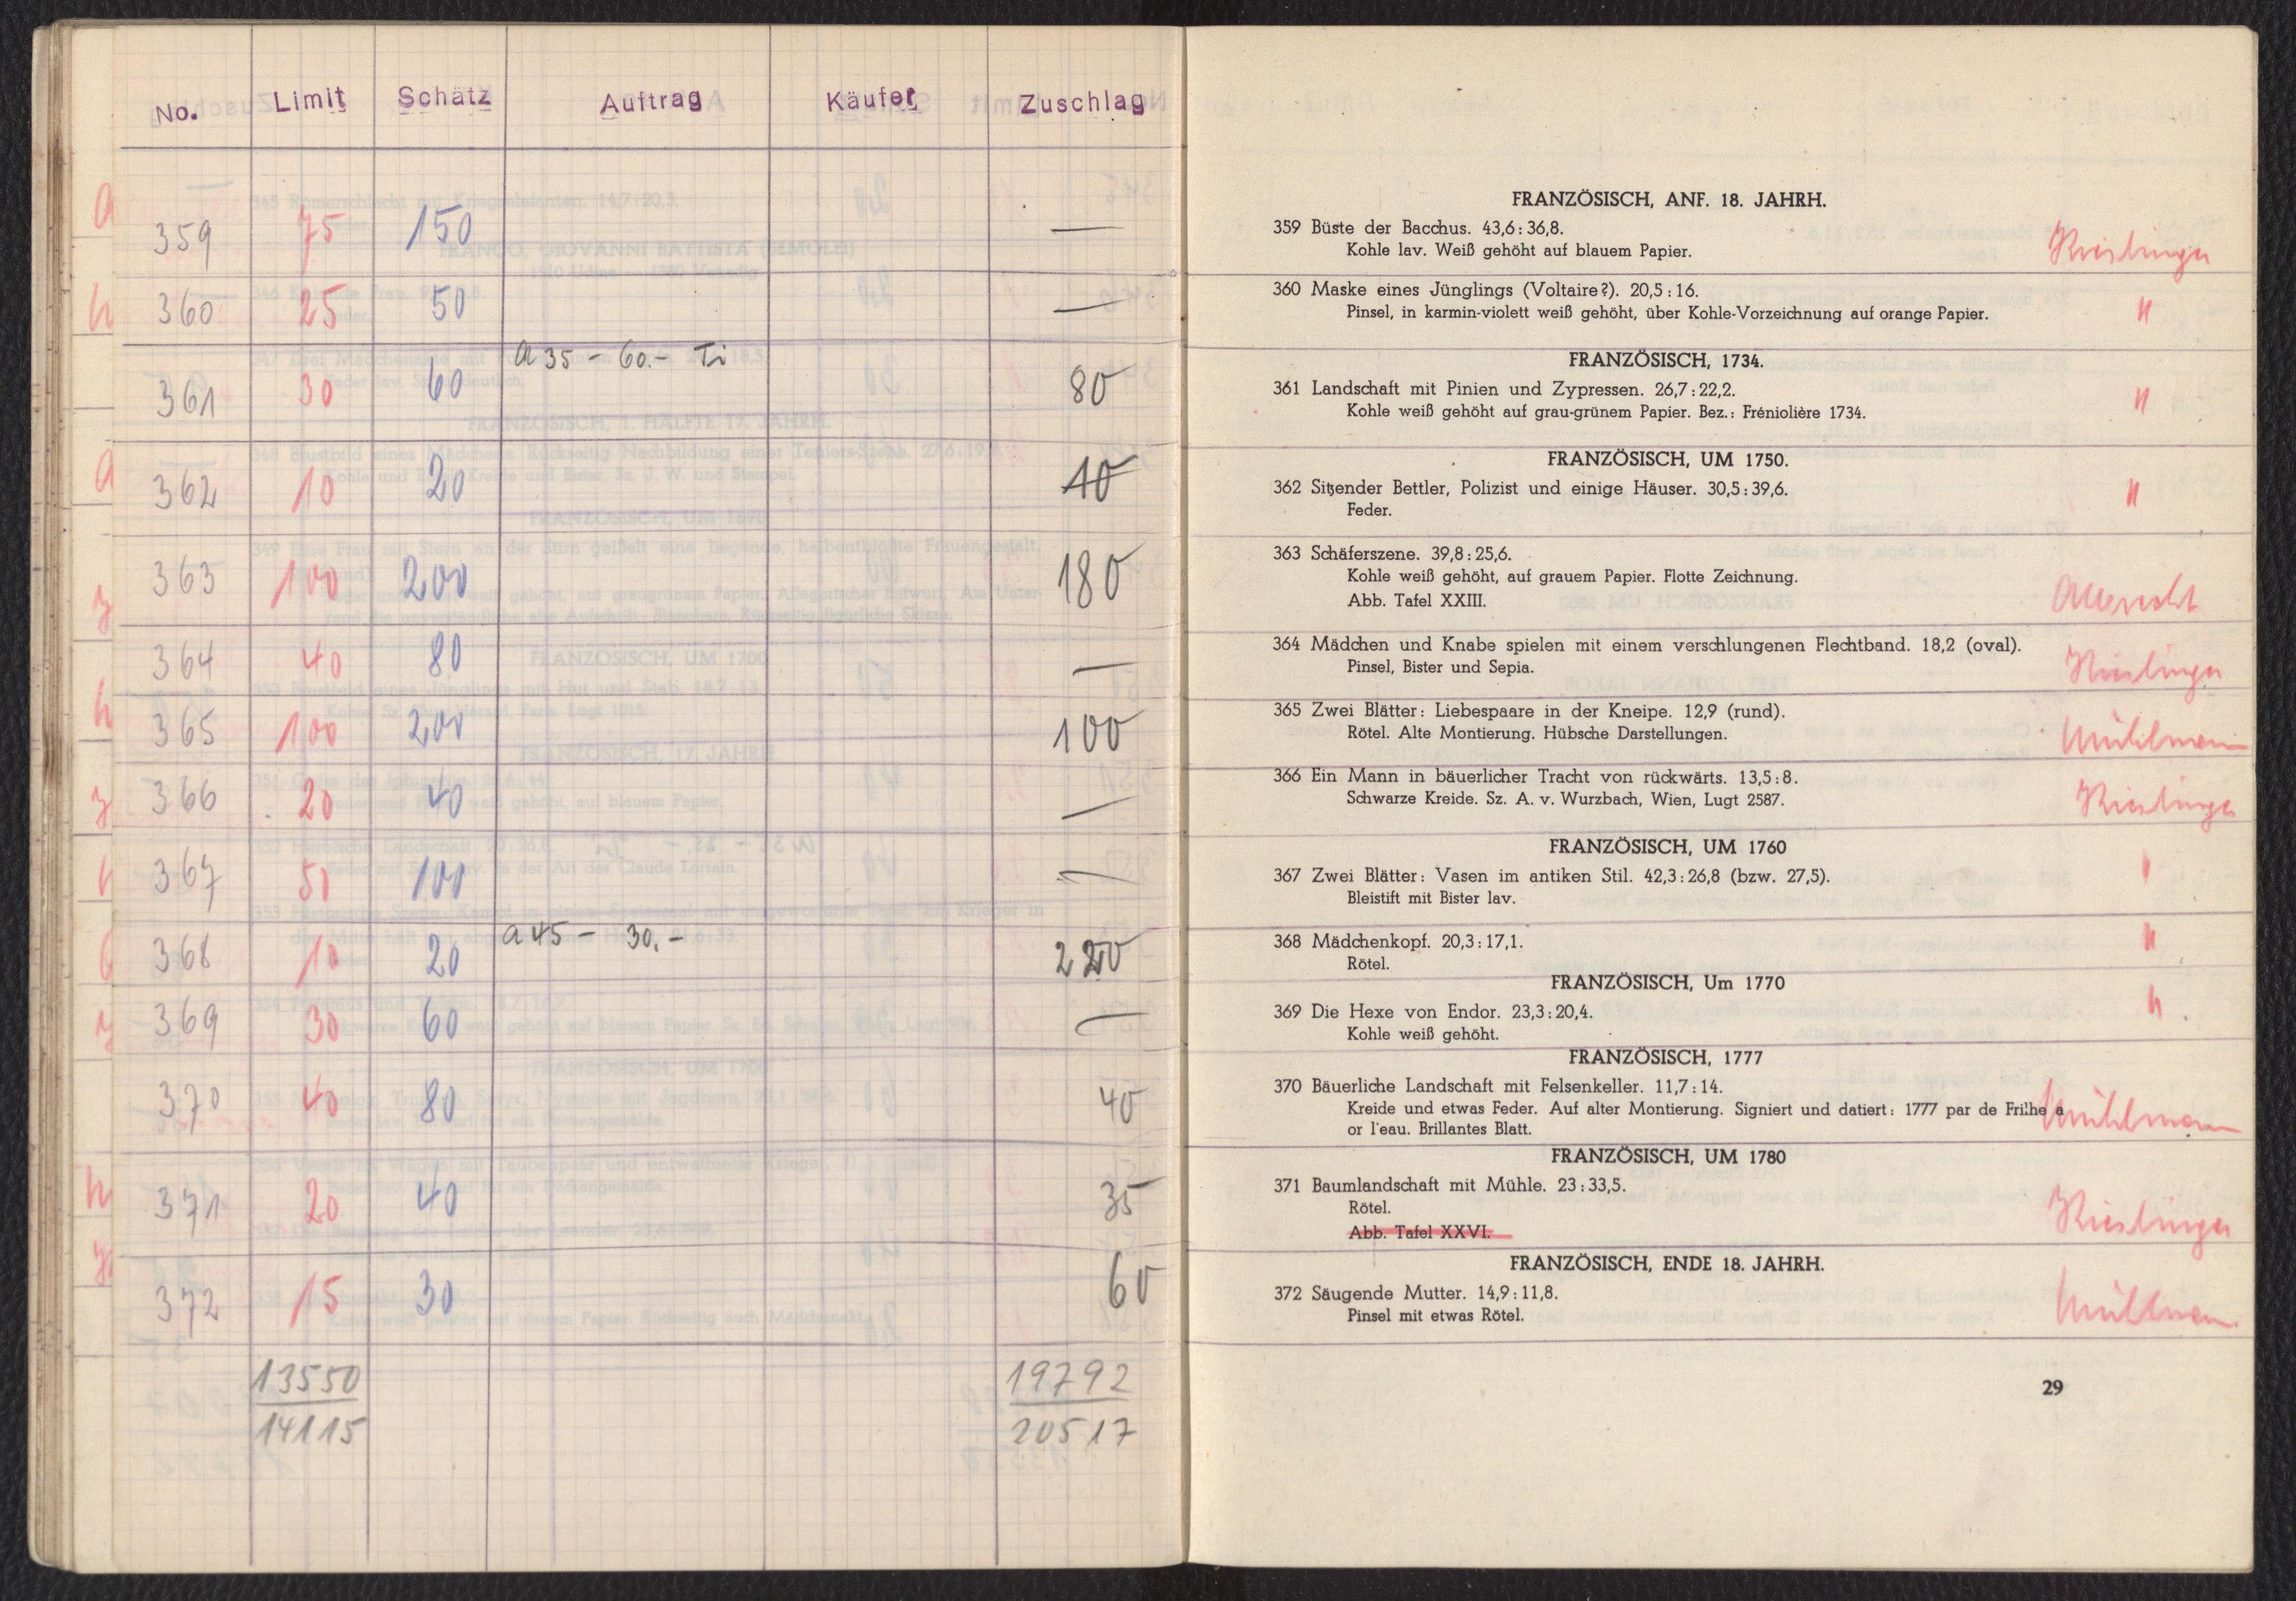 No. Limit Schätz Auftrag Käufer Zuschlag
359 75 150 —
360 25 50 —
361 30 60 a 35 - 60.- Ti 80
362 10 20 10
363 100 200 180
364 40 80 —
365 100 200 100
366 20 40 —
367 50 100 —
368 10 20 a 45 - 30.- 220
369 30 60 —
370 40 80 40
371 20 40 35
372 15 30 60
13550 19792
14115 20517
FRANZÖSISCH, ANF. 18. JAHRH.
359 Büste der Bacchus. 43,6 : 36,8.
Kohle lav. Weiß gehöht auf blauem Papier.
360 Maske eines Jünglings (Voltaire?). 20,5 : 16.
Pinsel, in karmin-violett weiß gehöht, über Kohle-Vorzeichnung auf orange Papier. "
FRANZÖSISCH, 1734.
361 Landschaft mit Pinien und Zypressen. 26,7 : 22,2.
Kohle weiß gehöht auf grau-grünem Papier. Bez.: Fréniolière 1734. "
FRANZÖSISCH, UM 1750.
362 Sitzender Bettler, Polizist und einige Häuser. 30,5 : 39,6. "
Feder.
363 Schäferszene. 39,8 : 25,6.
Kohle weiß gehöht, auf grauem Papier. Flotte Zeichnung.
Abb. Tafel XXIII. Albrecht
364 Mädchen und Knabe spielen mit einem verschlungenen Flechtband. 18,2 (oval).
Pinsel, Bister und Sepia.
365 Zwei Blätter: Liebespaare in der Kneipe. 12,9 (rund).
Rötel. Alte Montierung. Hübsche Darstellungen. Mühlmann
366 Ein Mann in bäuerlicher Tracht von rückwärts. 13,5 : 8.
Schwarze Kreide. Sz. A. v. Wurzbach, Wien, Lugt 2587.
FRANZÖSISCH, UM 1760
367 Zwei Blätter: Vasen im antiken Stil. 42,3 : 26,8 (bzw. 27,5). "
Bleistift mit Bister lav.
368 Mädchenkopf. 20,3 : 17,1. "
Rötel.
FRANZÖSISCH, Um 1770
369 Die Hexe von Endor. 23,3 : 20,4. "
Kohle weiß gehöht.
FRANZÖSISCH, 1777
370 Bäuerliche Landschaft mit Felsenkeller. 11,7 : 14.
Kreide und etwas Feder. Auf alter Montierung. Signiert und datiert: 1777 par de Frilhe a Mühlmann
or l'eau. Brillantes Blatt.
FRANZÖSISCH, UM 1780
371 Baumlandschaft mit Mühle. 23 : 33,5.
Rötel.
Abb. Tafel XXVI.
FRANZÖSISCH, ENDE 18. JAHRH.
372 Säugende Mutter. 14,9 : 11,8.
Pinsel mit etwas Rötel. Mühlmann
29